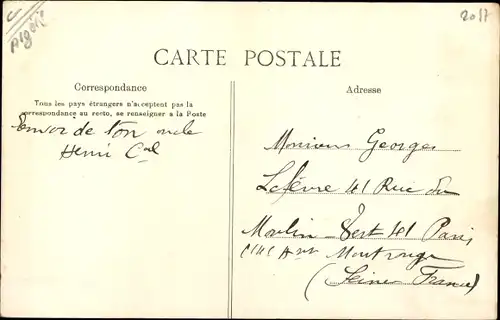 Algérie
2017
CARTE POSTALE
Correspondance
Tous les pays étrangers n'acceptent pas la
correspondance au recto, se renseigner à la Poste
Envoi de ton oncle
Henri
Adresse
Monsieur Georges
Lefèvre 41 Rue du
Moulin-Vert 41 Paris
Montrouge
(Seine France)